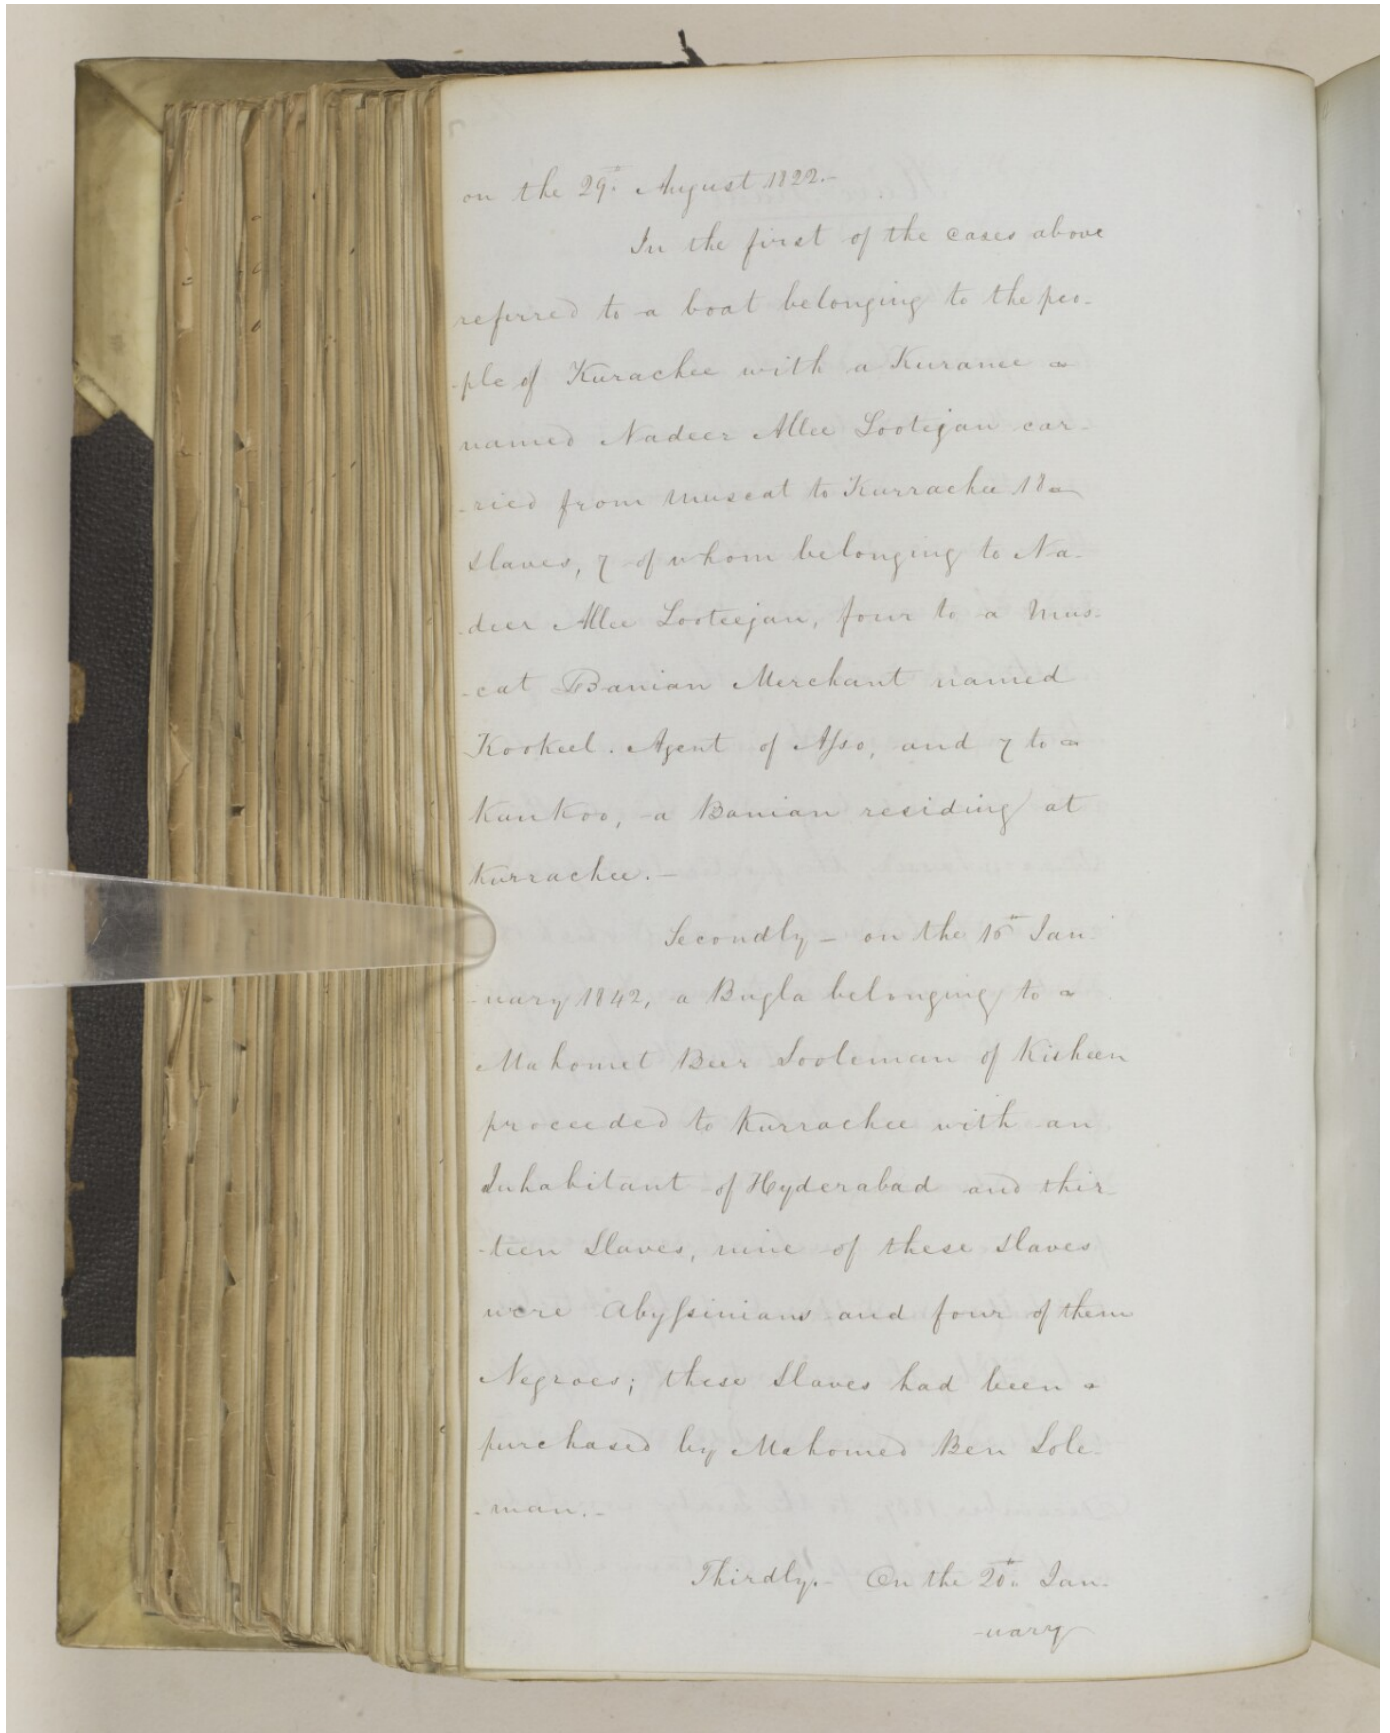 on the 29th. August 1822.-
In the first of the cases above
referred to a boat belonging to the peo-
-ple of Kurachee with a Kuranee
named Nadeer Allee Lootejan car-
-ried from Muscat to Kurrachee 18
Slaves, 7 of whom belonging to Na-
-deer Allee Looteejan, four to a Mus-
-cat Banian Merchant named
Kookeel. Agent of Asso, and 7 to
Kunkoo, a Banian residing at
Kurrachee.-
Secondly - on the 16th Jan-
-uary 1842, a Bugla belonging to
Mahomet Beer Sooleman of Kisheen
proceeded to Kurrachee with an
Inhabitant of Hyderabad and thir-
-teen Slaves, nine of these Slaves
were Abyssinians and four of them
Negroes; these Slaves had been
purchased by Mahomed Ben Sole-
-man.-
Thirdly.- On the 20th. Jan-
-uary